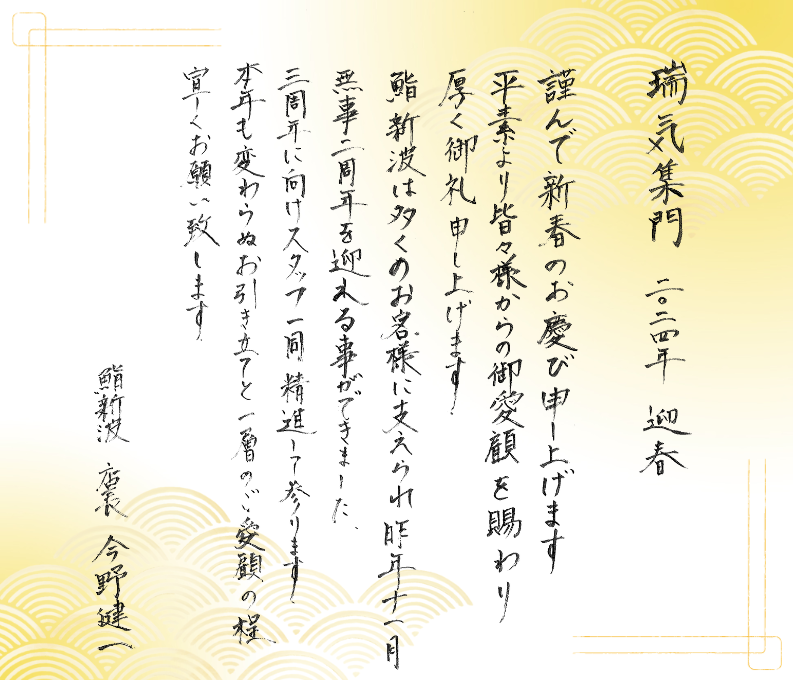 瑞気集門　二〇二四年　迎春
謹んで新春のお慶び申し上げます
平素より皆々様からの御愛顧を賜わり
厚く御礼申し上げます。
鮨新波は多くのお客様に支えられ昨年十一月
無事二周年を迎れる事ができました、
三周年に向けスタッフ一同精進して参ります。
本年も変わらぬお引き立てと一層のご愛顧の程
宜しくお願い致します。
鮨新波　店長　今野健一